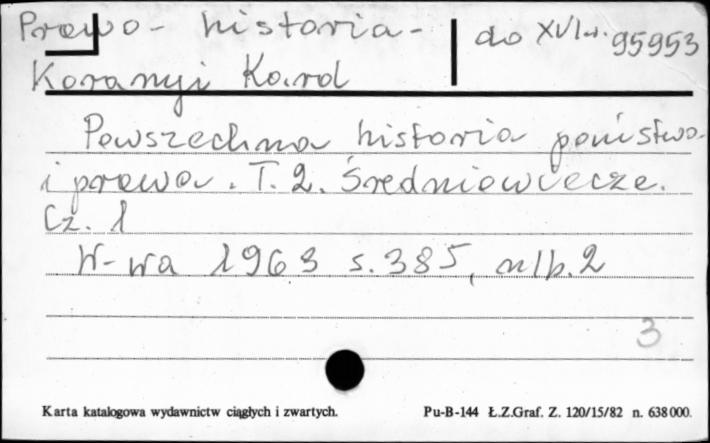 Prawo - historia - do XVI w. 95953
Koranyi Karol
Powszechna historia państwa
i prawa. T. 2. Średniowiecze.
Cz. 1
W-wa 1963 s. 385, nlb. 2
3
Karta katalogowa wydawnictw ciągłych i zwartych. Pu-B-144 Ł.Z.Graf. Z. 120/15/82 n. 638000.